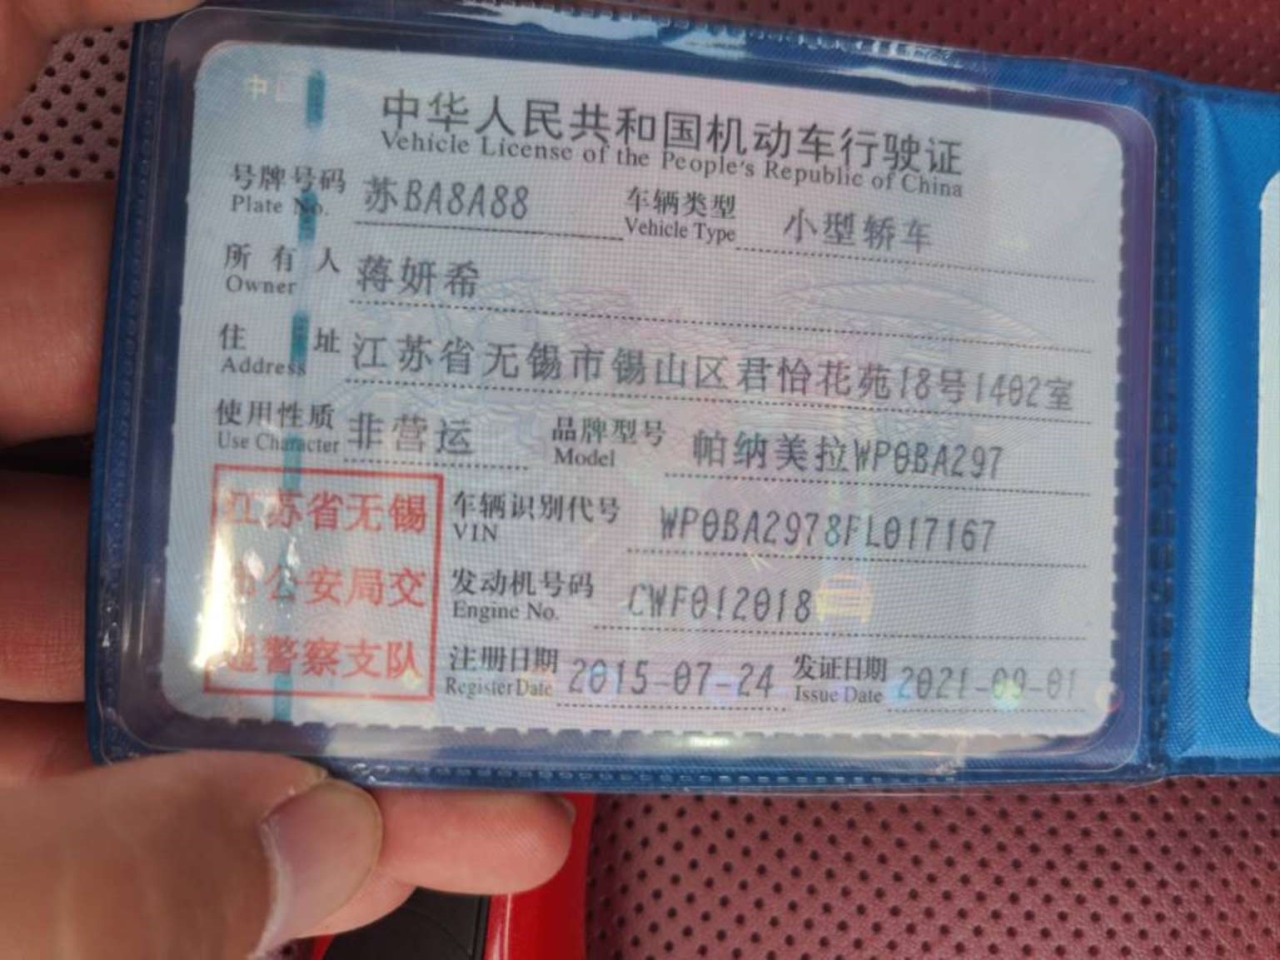 中华人民共和国机动车行驶证
Vehicle License of the People's Republic of China
号牌号码 苏BA8A88 车辆类型 小型轿车
Plate No. Vehicle Type
所有人 蒋妍希
Owner
住址 江苏省无锡市锡山区君怡花苑18号1402室
Address
使用性质 非营运 品牌型号 帕纳美拉WP0BA297
Use Character Model
车辆识别代号 WP0BA2978FL017167
VIN
发动机号码 CWF012018
Engine No.
注册日期 2015-07-24 发证日期 2021-09-01
Register Date Issue Date
江苏省无锡
市公安局交
通警察支队